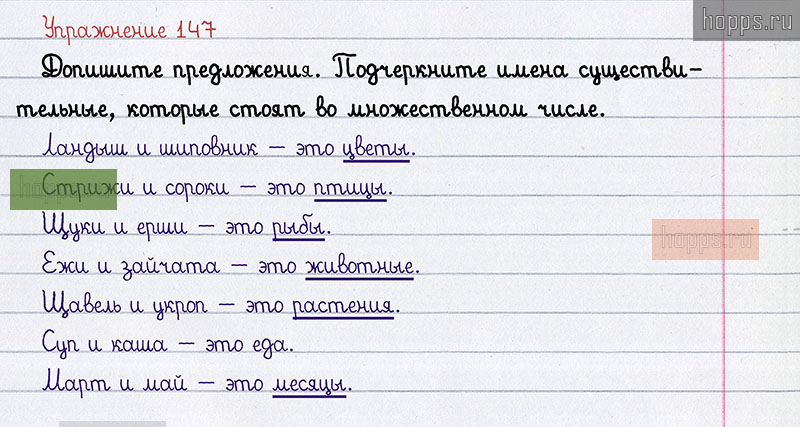 hopps.ru
Упражнение 147
Допишите предложения. Подчеркните имена существи-
тельные, которые стоят во множественном числе.
Ландыш и шиповник – это цветы.
Стрижи и сороки – это птицы.
Щуки и ерши – это рыбы.
Ежи и зайчата – это животные.
Щавель и укроп – это растения.
Суп и каша – это еда.
Март и май – это месяцы.
hopps.ru